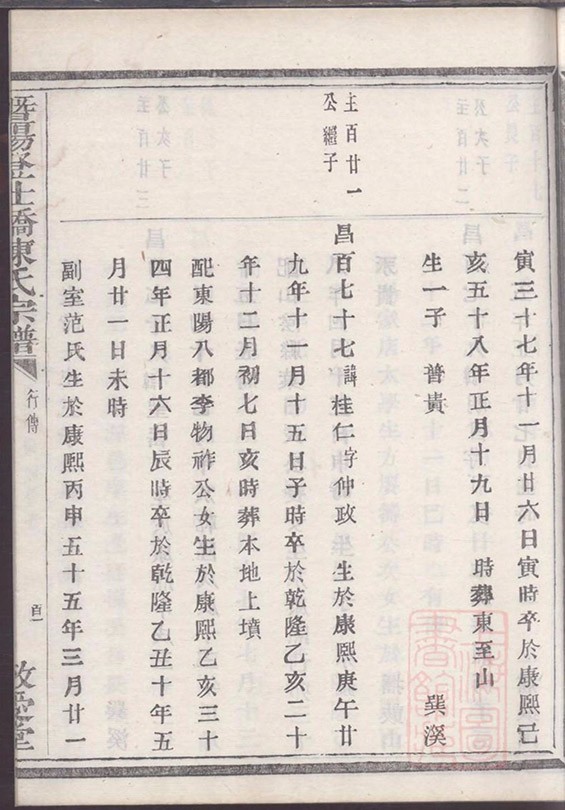 寅三十七年十一月廿六日寅時卒於康熙己
亥五十八年正月十九日 時葬東至山 巽溪
生一子 普貴
主百廿一
公繼子
昌百七十七諱桂仁字仲政 生於康熙庚午廿
九年十一月十五日子時卒於乾隆乙亥二十
年十二月初七日亥時葬本地上墳
配東陽八都李物祚公女生於康熙乙亥三十
四年正月十六日辰時卒於乾隆乙丑十年五
月廿一日未時
副室范氏生於康熙丙申五十五年三月廿一
暨陽登仕橋陳氏宗譜
行傳
敦愛堂